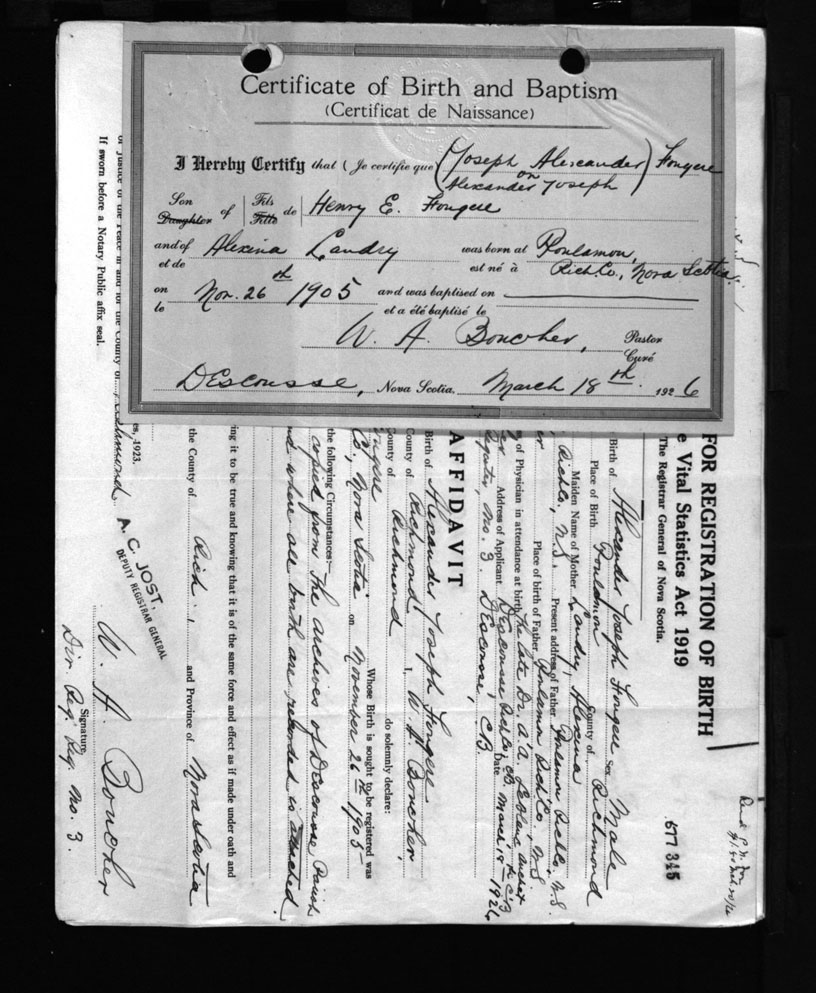 Certificate of Birth and Baptism
(Certificat de Naissance)
I Hereby Certify that (Je certifie que (Joseph Alexander) Fougere
or
Alexander Joseph
Son Fils
Daughter of Fille de Henry E. Fougere
and of Alexina Landry was born at Poulamon,
et de est né à Rich Co., Nova Scotia.
on Nov. 26th 1905 and was baptised on
le et a été baptisé le
W. A. Boucher, Pastor
Curé
DEscousse, Nova Scotia. March 18th 1926
FOR REGISTRATION OF BIRTH
e Vital Statistics Act 1919
The Registrar General of Nova Scotia.
577345
Birth of Alexander Joseph Fougere Sex Male
Place of Birth Poulamon County of Richmond
Maiden Name of Mother Landry, Alexina
Rich Co., N.S. Present address of Father Poulamon Rich Co., N.S.
Place of birth of Father Poulamon Rich Co., N.S.
of Physician in attendance at birth the late Dr. A. A. LeBlanc
Address of Applicant DEscousse Rich Co., C.B. Date March 18 1926
Deputy, No. 3. DEscousse, C.B.
AFFIDAVIT
Birth of Alexander Joseph Fougere
County of Richmond I, W. A. Boucher,
County of Richmond do solemnly declare:
Fougere Whose Birth is sought to be registered was
Co., Nova Scotia on November 26th 1905
the following Circumstances:—
copied from the archives of DEscousse Parish
and where all birth are recorded is attached.
ing it to be true and knowing that it is of the same force and effect as if made under oath and
the County of Rich., and Province of Nova Scotia
W. A. Boucher
Signature.
Div. Reg. No. 3.
A. C. JOST,
DEPUTY REGISTRAR GENERAL
es, 1923.
or Justice of the Peace in and for the County of Richmond
If sworn before a Notary Public affix seal.